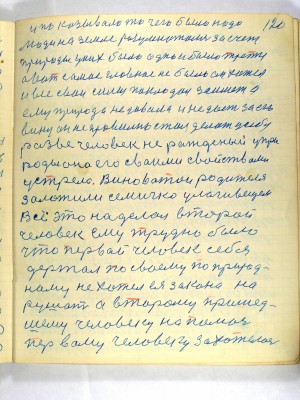 и показывало то чего было надо
120
люди на земле розумножались за счет
природы у них было одно и было третье
а вот самое главное не было
и все свои силы
ему природа не давала и не дает за его
вину он не правильно стал делать
разве человек не рожденый
родила его своими свойствами
устрело. Виноватои родители
заложили семечко у могивещем
Всё это наделал второй
человек ему трудно было
что первай человек себя
держал по своему по природ-
наму не хотел ея закона на
рушат а второму пришед-
шему человеку на помоч
первому человеку захотелося